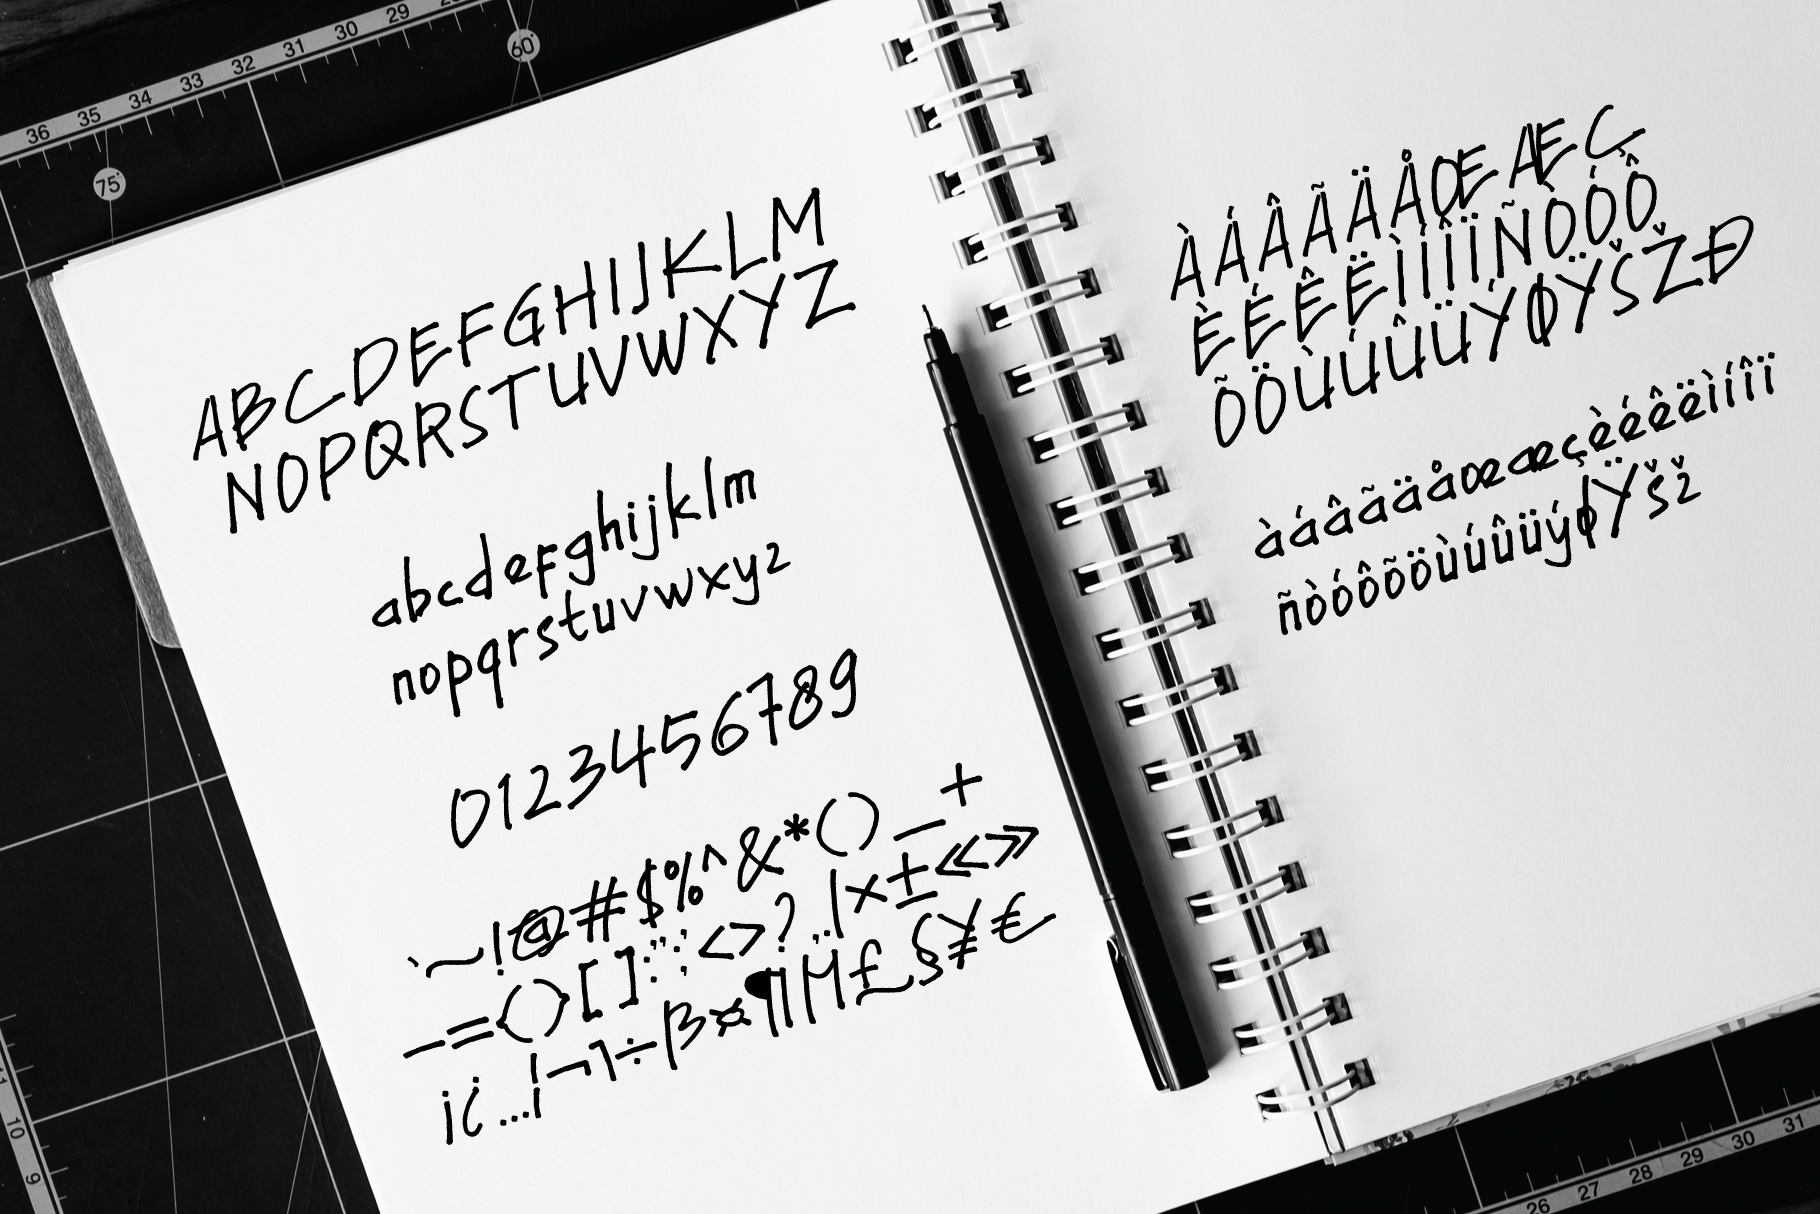 36 35 34 33 32 31 30 29
75°
60°
ABCDEFGHIJKLM
NOPQRSTUVWXYZ
abcdefghijklm
nopqrstuvwxyz
0123456789
`~!@#$%^&*()_+
-={}[]:";'<>?,.|×±«»
¡¿...¦¬¬÷β¤¶M£§¥€
ÀÁÂÃÄÅŒÆÇ
ÈÉÊËÌÍÎÏÑÒÓÔ
ÕÖÙÚÛÜÝØŸŠŽÐ
àáâãäåœæçèéêëìíîï
ñòóôõöùúûüýøŸšž
11 10 9
26 27 28 29 30 31